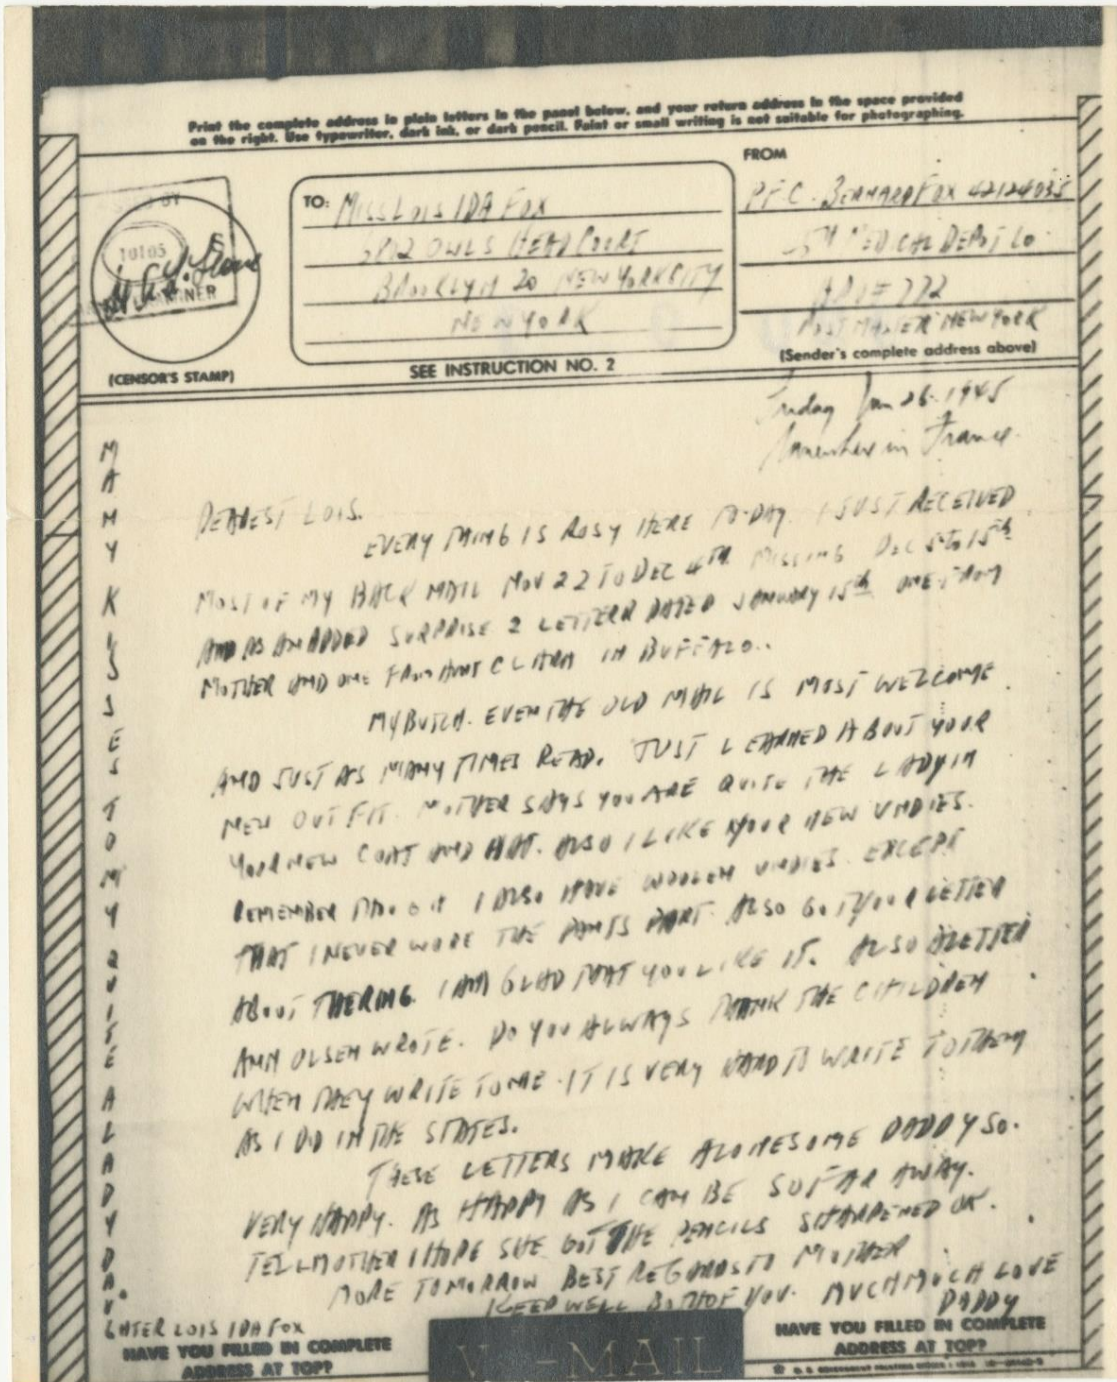 Print the complete address in plain letters in the panel below, and your return address in the space provided
on the right. Use typewriter, dark ink, or dark pencil. Faint or small writing is not suitable for photographing.
FROM
TO: MISS LOIS IDA FOX
6802 OWLS HEAD COURT
BROOKLYN 20 NEW YORK CITY
NEW YORK
PFC. BERNARD FOX 42124035
5TH MEDICAL DEPOT CO
APO # 772
POSTMASTER NEW YORK
(Sender's complete address above)
10105
(CENSOR'S STAMP)
SEE INSTRUCTION NO. 2
Friday Jan 26-1945
Somewhere in France.
DEAREST LOIS.
EVERY THING IS ROSY HERE TO-DAY. I JUST RECEIVED
MOST OF MY BACK MAIL NOV 22 TO DEC 4TH MISSING DEC 5 TO 15th
AND AS AN ADDED SURPRISE 2 LETTERS DATED JANUARY 15th ONE FROM
MOTHER AND ONE FROM AUNT CLARA IN BUFFALO..
MY BUTCH. EVEN THE OLD MAIL IS MOST WELCOME
AND JUST AS MANY TIMES READ. JUST LEARNED ABOUT YOUR
NEW OUTFIT. MOTHER SAYS YOU ARE QUITE THE LADY IN
YOUR NEW COAT AND HAT. ALSO I LIKE YOUR NEW UNDIES.
REMEMBER I ALSO HAVE WOOLEN UNDIES EXCEPT
THAT I NEVER WORE THE PANTS PART. ALSO GOT YOUR LETTER
ABOUT THE RING. I AM GLAD THAT YOU LIKE IT. ALSO A LETTER
ANN OLSEN WROTE. DO YOU ALWAYS THANK THE CHILDREN
WHEN THEY WRITE TO ME. IT IS VERY HARD TO WRITE TO THEM
AS I DID IN THE STATES.
THESE LETTERS MAKE A LONESOME DADDY SO.
VERY HAPPY. AS HAPPY AS I CAN BE SO FAR AWAY.
TELL MOTHER I HOPE SHE GOT THE PENCILS SHARPENED OK.
MORE TOMORROW BEST REGARDS TO MOTHER
KEEP WELL BOTH OF YOU. MUCH MUCH LOVE
DADDY
MANY KISSES TO MY QUITE A LADY DAUGHTER LOIS IDA FOX
HAVE YOU FILLED IN COMPLETE
ADDRESS AT TOP?
V···-MAIL
HAVE YOU FILLED IN COMPLETE
ADDRESS AT TOP?